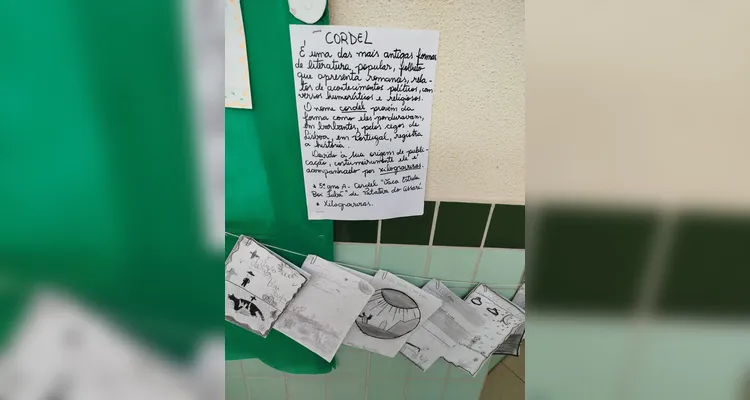 CORDEL
É uma das mais antigas formas
de literatura popular, folheto
que apresenta romances, rela-
tos de acontecimentos políticos, com
versos humorísticos e religiosos.
O nome cordel provém da
forma como eles penduravam,
em barbantes, pelos cegos de
Lisboa, em Portugal, registra
a história.
Devido à sua origem de publi-
cação, costumeiramente ele é
acompanhado por xilogravuras.
* 5º ano A - Cordel "Vaca Estrela
Boi Fubá" de Patativa do Assaré
* Xilogravuras.